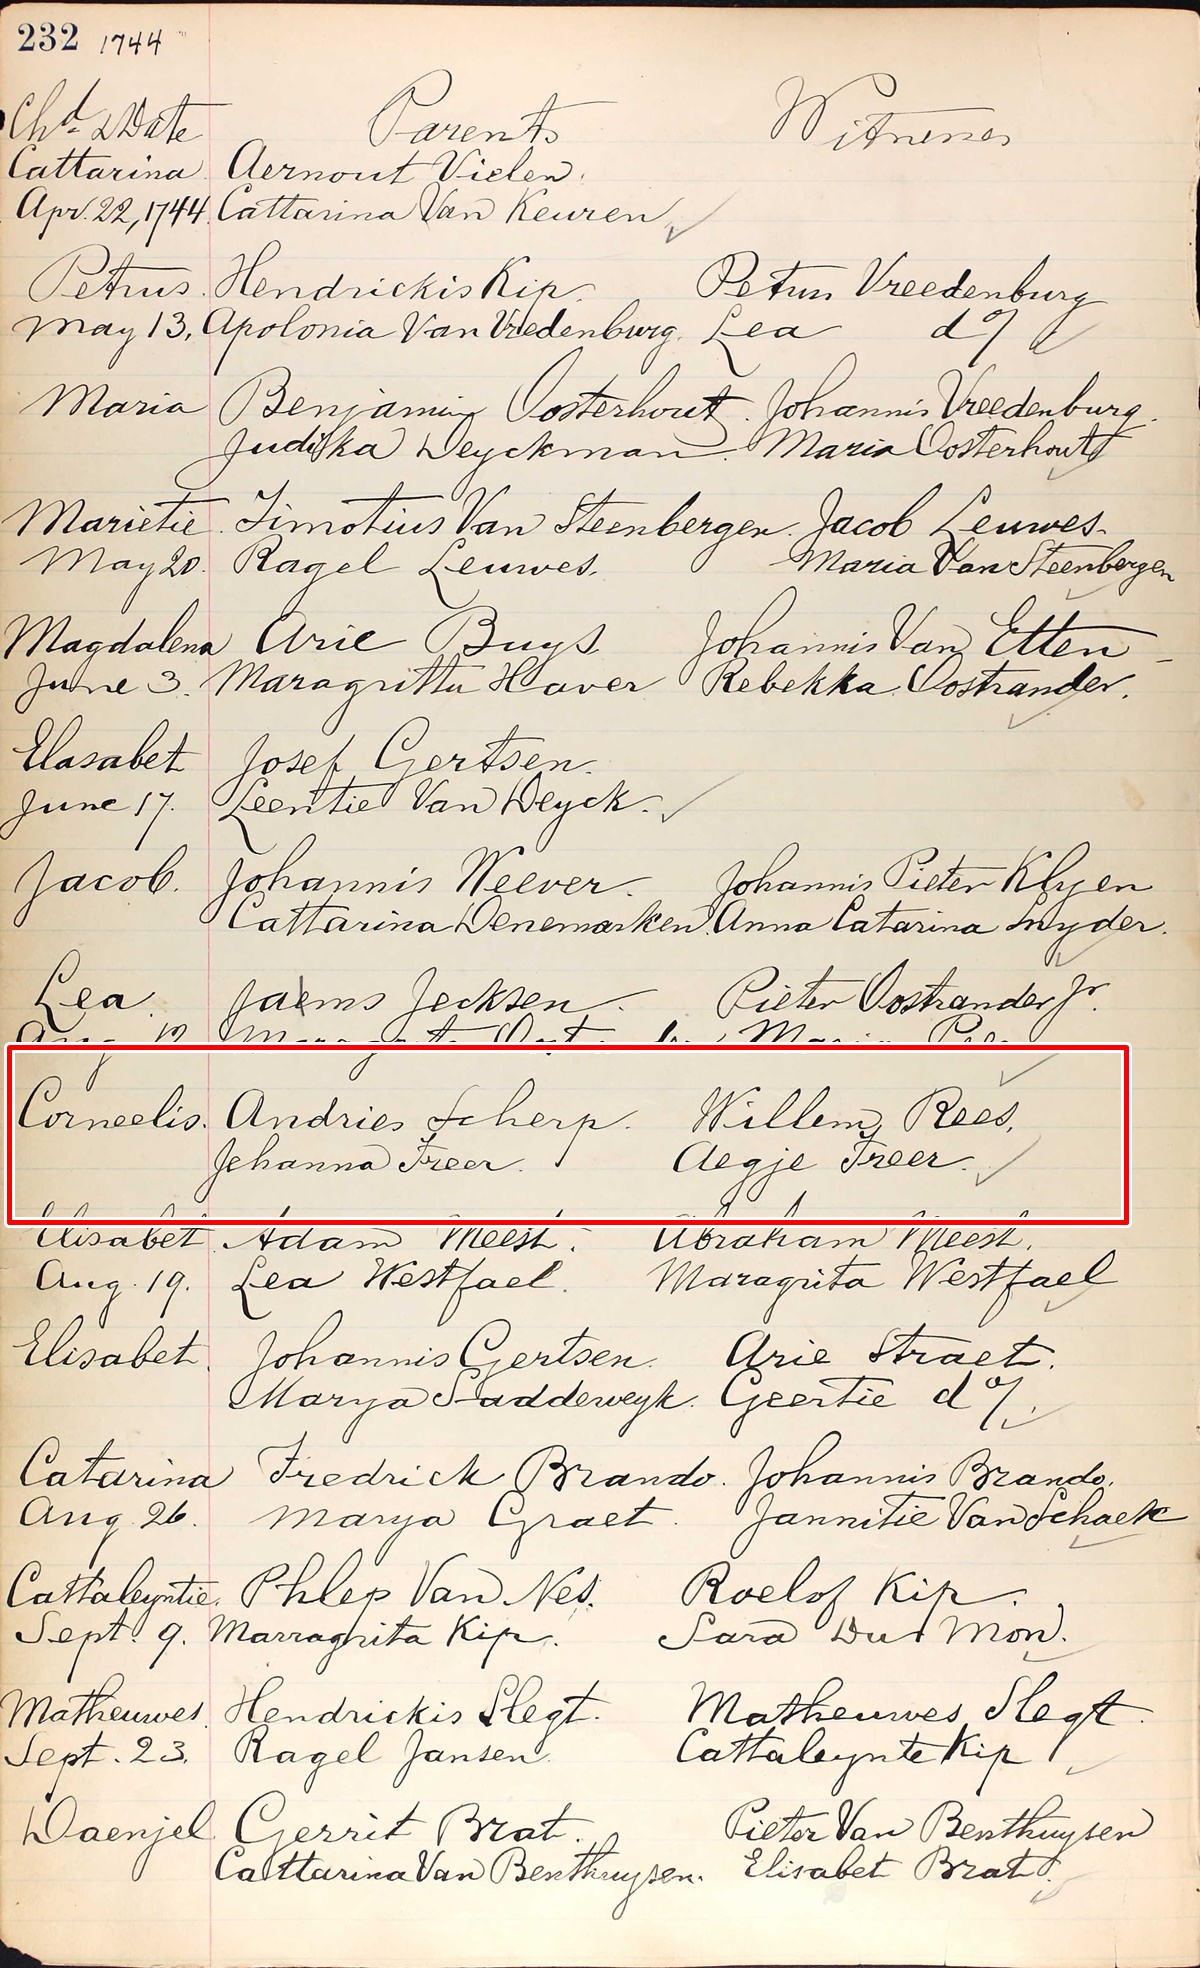 232 1744
Chd & Date Parents Witnesses
Cattarina Aernout Vielen.
Apr. 22, 1744 Cattarina Van Keuren
Petrus. Hendrickis Kip. Petrus Vreedenburg
May 13, Apolonia Van Vredenburg. Lea do/
Maria Benjamin Oosterhout. Johannis Vreedenburg.
Judikka Deyckman Maria Oosterhout
Marietie Timotius Van Steenbergen. Jacob Leuwes.
May 20. Ragel Leuwes. Maria Van Steenbergen
Magdalena Arie Buys Johannis Van Etten
June 3. Maragritta Haver Rebekka Oostrander.
Elasabet Josef Gertsen.
June 17. Leentie Van Deyck.
Jacob. Johannis Weever. Johannis Pieter Klyen
Cattarina Denemarken. Anna Catarina Snyder.
Lea Jaems Jecksen. Pieter Oostrander Jr.
Corneelis. Andries Scherp. Willem Rees.
Jehanna Freer. Aegje Freer.
Elisabet Adam Meest. Abraham Meest.
Aug. 19. Lea Westfael. Maragrita Westfael
Elisabet. Johannis Gertsen. Arie Straet.
Marya Saddeweyk. Geertie do/.
Catarina Fredrick Brando. Johannis Brando.
Aug. 26. Marya Graet. Jannitie Van Schaek
Cattaleyntie. Phlep Van Nes. Roelof Kip.
Sept. 9. Marragrita Kip. Sara Du Mon.
Matheuwes. Hendrickis Slegt. Matheuwes Slegt.
Sept. 23. Ragel Jansen. Cattaleynte Kip
Daenjel Gerrit Brat. Pieter Van Benthuysen
Cattarina Van Benthuysen. Elisabet Brat.